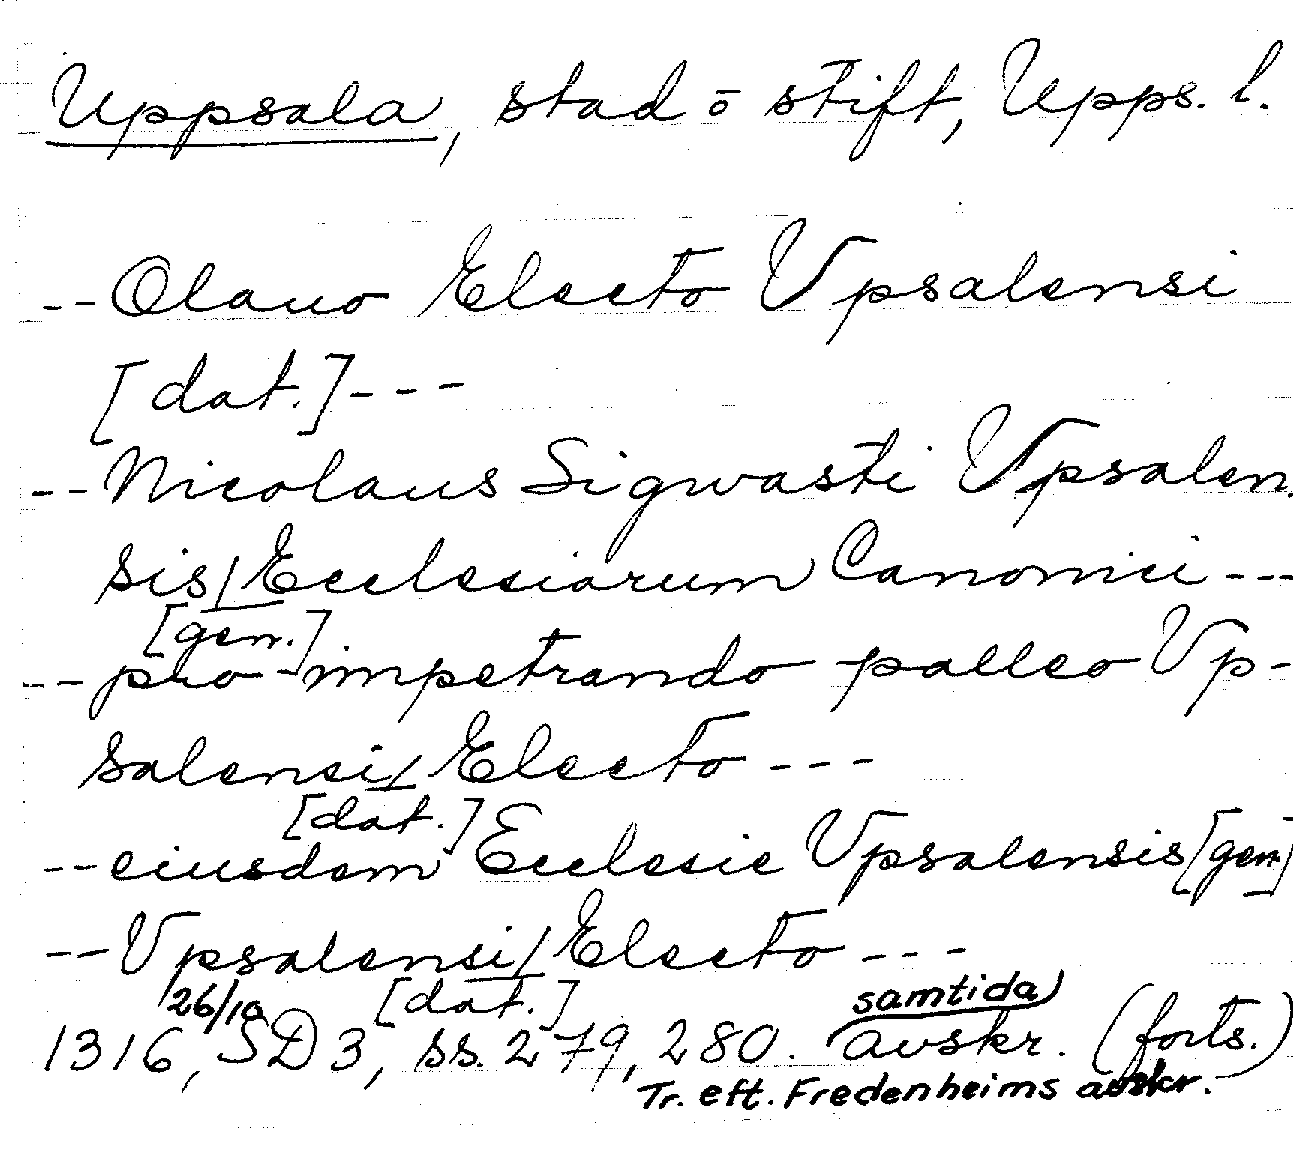 Uppsala, stad o stift, Upps. l.
--Olauo Electo Vpsalensi
[dat.]---
--Nicolaus Sigwasti Vpsalen
sis/Ecclesiarum Canonici---
[gen.]
--pro impetrando palleo Vp-
salensi/Electo---
[dat.]
--eiusdem Ecclesie Vpsalensis [gen]
--Vpsalensi/Electo---
26/10 [dat.] samtida
1316, SD 3, ss. 279, 280. avskr. (forts.)
Tr. eft. Fredenheims avskr.